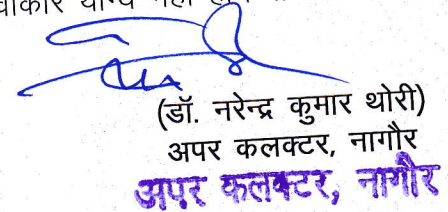 योग्य नहीं
(डॉ. नरेन्द्र कुमार थोरी)
अपर कलक्टर, नागौर
अपर कलक्टर, नागौर